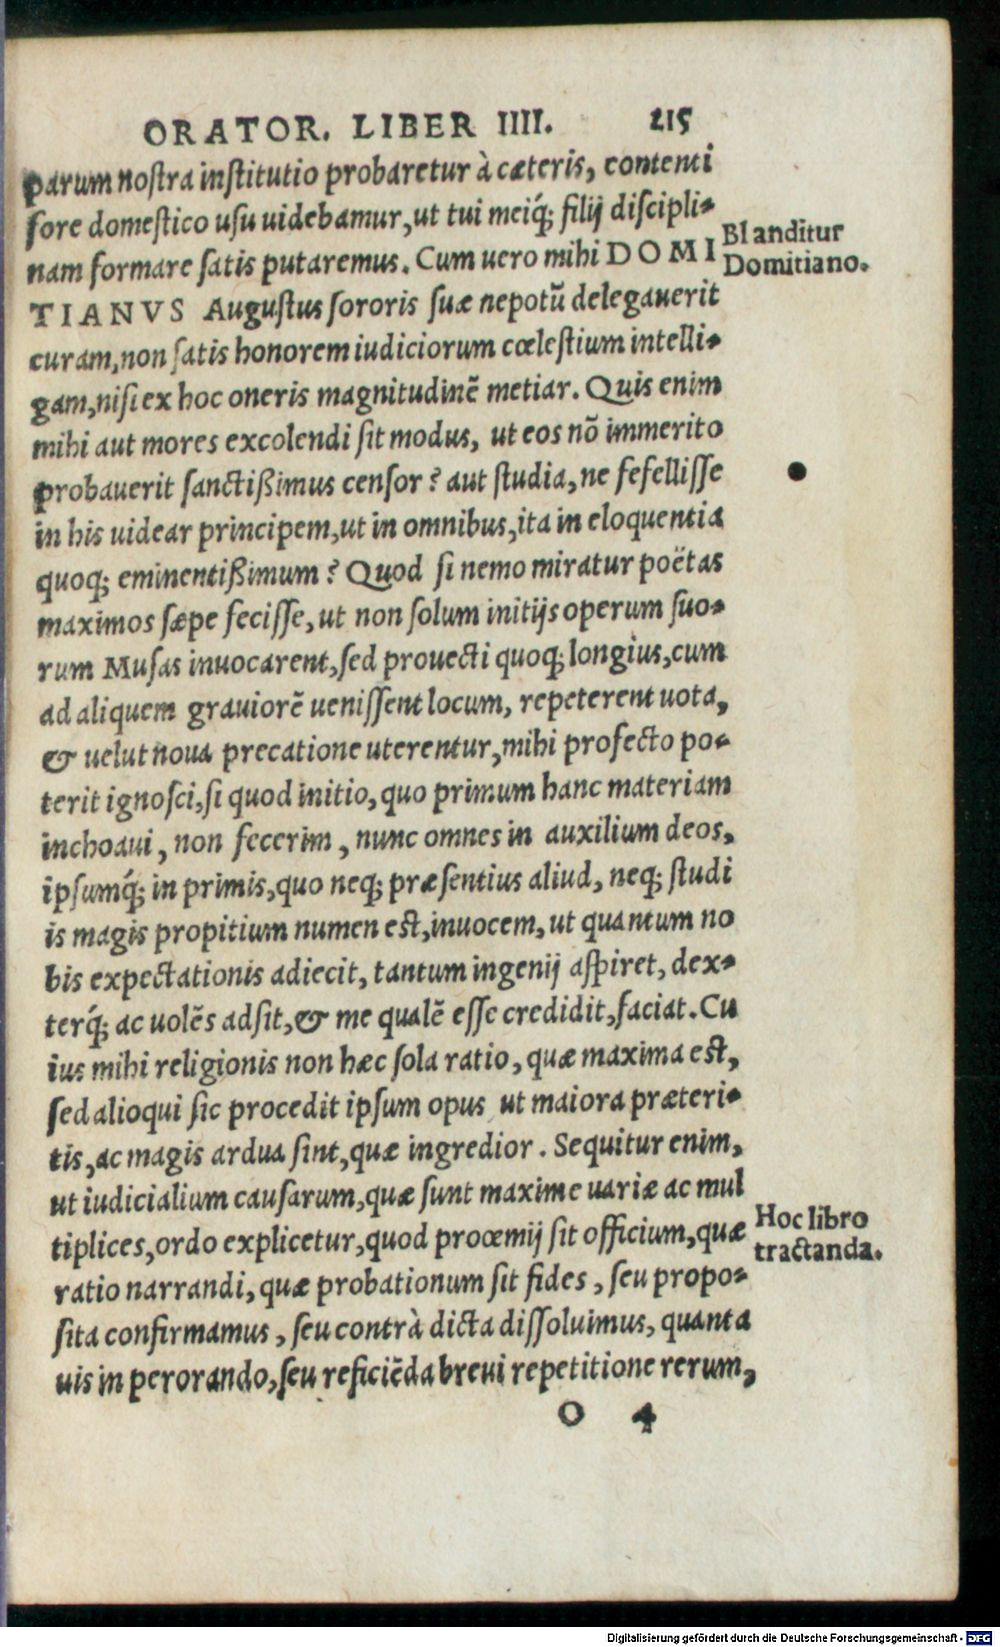 ORATOR. LIBER IIII. 215
parum nostra institutio probaretur à cæteris, contenti
fore domestico usu uidebamur, ut tui meiq́; filij discipli-
nam formare satis putaremus. Cum uero mihi DOMI
Blanditur
Domitiano.
TIANVS Augustus sororis suæ nepotũ delegauerit
curam, non satis honorem iudiciorum cœlestium intelli-
gam, nisi ex hoc oneris magnitudinẽ metiar. Quis enim
mihi aut mores excolendi sit modus, ut eos nõ immerito
probauerit sanctißimus censor? aut studia, ne fefellisse
in his uidear principem, ut in omnibus, ita in eloquentia
quoq; eminentißimum? Quod si nemo miratur poëtas
maximos sæpe fecisse, ut non solum initijs operum suo-
rum Musas inuocarent, sed prouecti quoq; longius, cum
ad aliquem grauiorẽ uenissent locum, repeterent uota,
& uelut noua precatione uterentur, mihi profecto po-
terit ignosci, si quod initio, quo primum hanc materiam
inchoaui, non fecerim, nunc omnes in auxilium deos,
ipsumq́; in primis, quo neq; præsentius aliud, neq; studi
is magis propitium numen est, inuocem, ut quantum no
bis expectationis adiecit, tantum ingenij aspiret, dex-
terq́; ac uolẽs adsit, & me qualẽ esse credidit, faciat. Cu
ius mihi religionis non hæc sola ratio, quæ maxima est,
sed alioqui sic procedit ipsum opus ut maiora præteri-
tis, ac magis ardua sint, quæ ingredior. Sequitur enim,
ut iudicialium causarum, quæ sunt maxime uariæ ac mul
tiplices, ordo explicetur, quod proœmij sit officium, quæ
Hoc libro
tractanda.
ratio narrandi, quæ probationum sit fides, seu propo-
sita confirmamus, seu contrà dicta dissoluimus, quanta
uis in perorando, seu reficiẽda breui repetitione rerum,
O 4
Digitalisierung gefördert durch die Deutsche Forschungsgemeinschaft - DFG